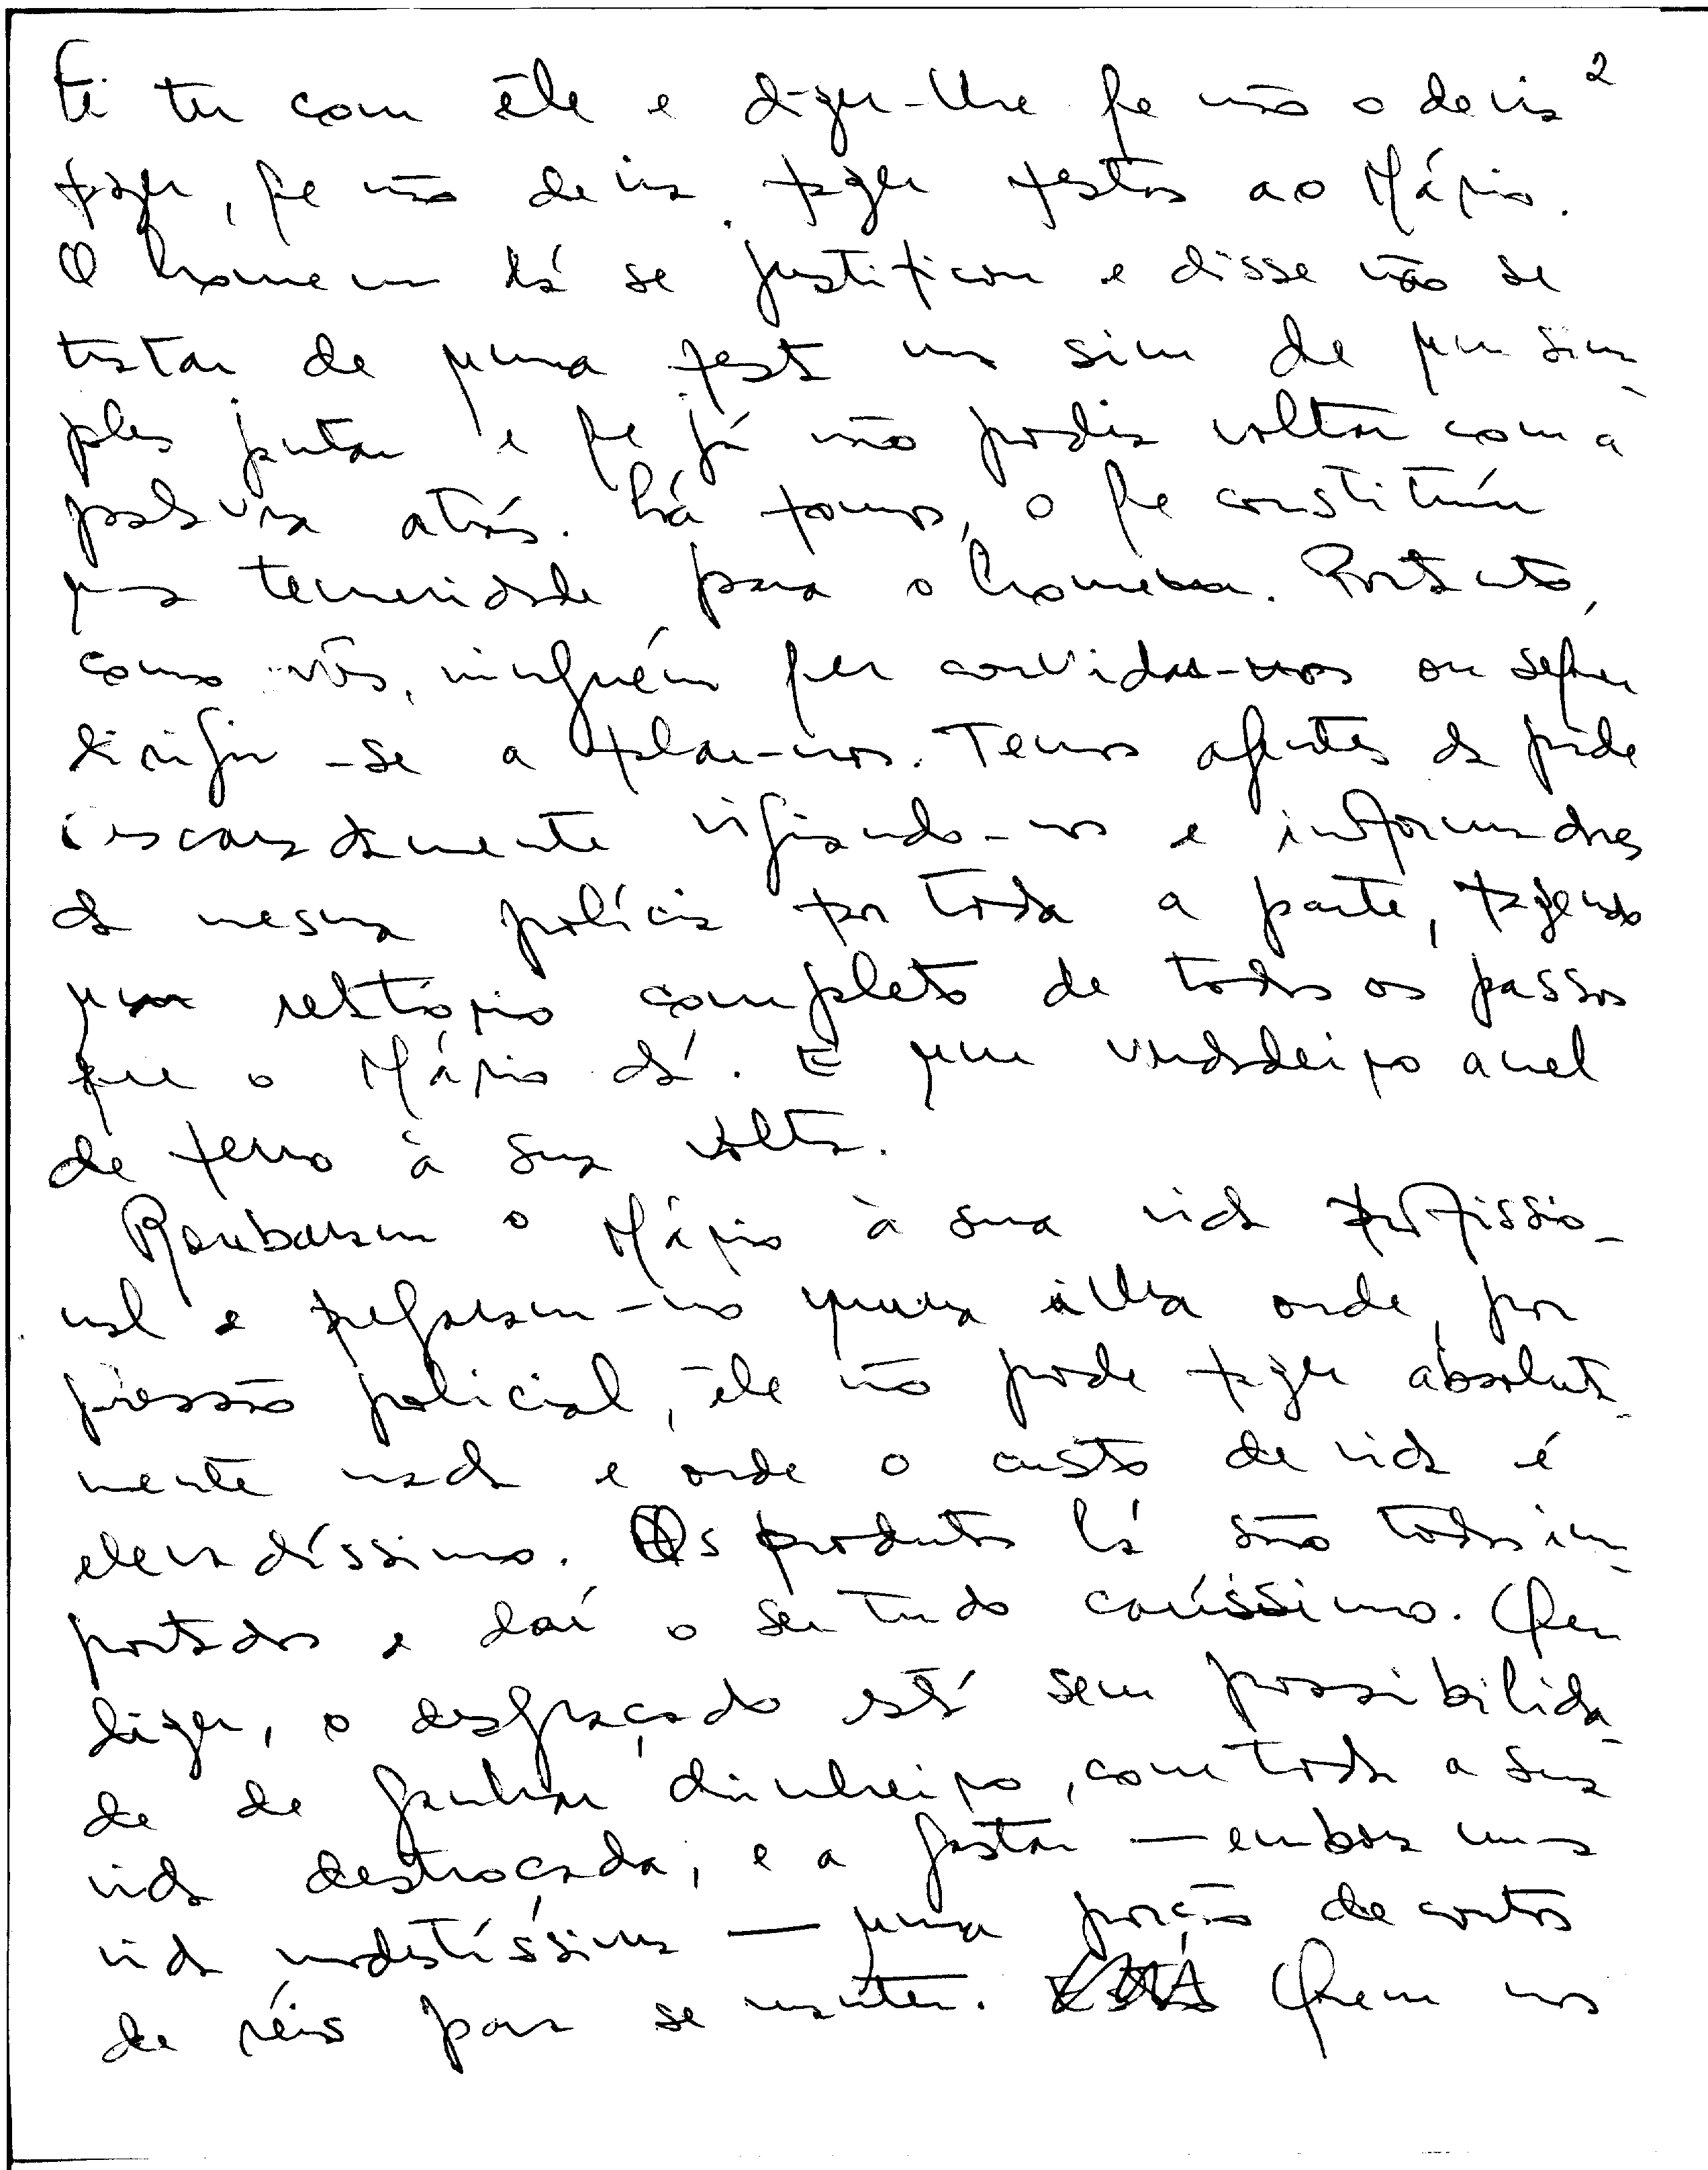 2
foi ter com êle e dizer-lhe que não o devia
fazer, que não devia fazer festas ao Mário.
O homem lá se justificou e disse não se
tratar de uma festa mas sim de um sim-
ples jantar e que já não podia voltar com a
palavra atrás. Lá fomos, o que constituiu
uma temeridade para o homem. Portanto,
como vês, ninguém quer convidar-nos ou sequer
dirigir-se a falar-nos. Temos agentes da pide
descaradamente vigiando-nos e informadores
da mesma polícia por toda a parte, fazendo
um relatório completo de todos os passos
que o Mário dá. É um verdadeiro anel
de ferro à sua volta.
Roubaram o Mário à sua vida profissio-
nal e pregaram-no numa ilha onde, por
pressão policial, êle não pode fazer absoluta-
mente nada e onde o custo de vida é
elevadíssimo. Os produtos lá são todos im-
portados e daí o ser tudo caríssimo. Quer
dizer, o desgraçado está sem possibilida-
de de ganhar dinheiro, com toda a sua
vida destroçada, e a gastar — embora uma
vida modestíssima — uma porção de contos
de réis para se manter. Quem nos